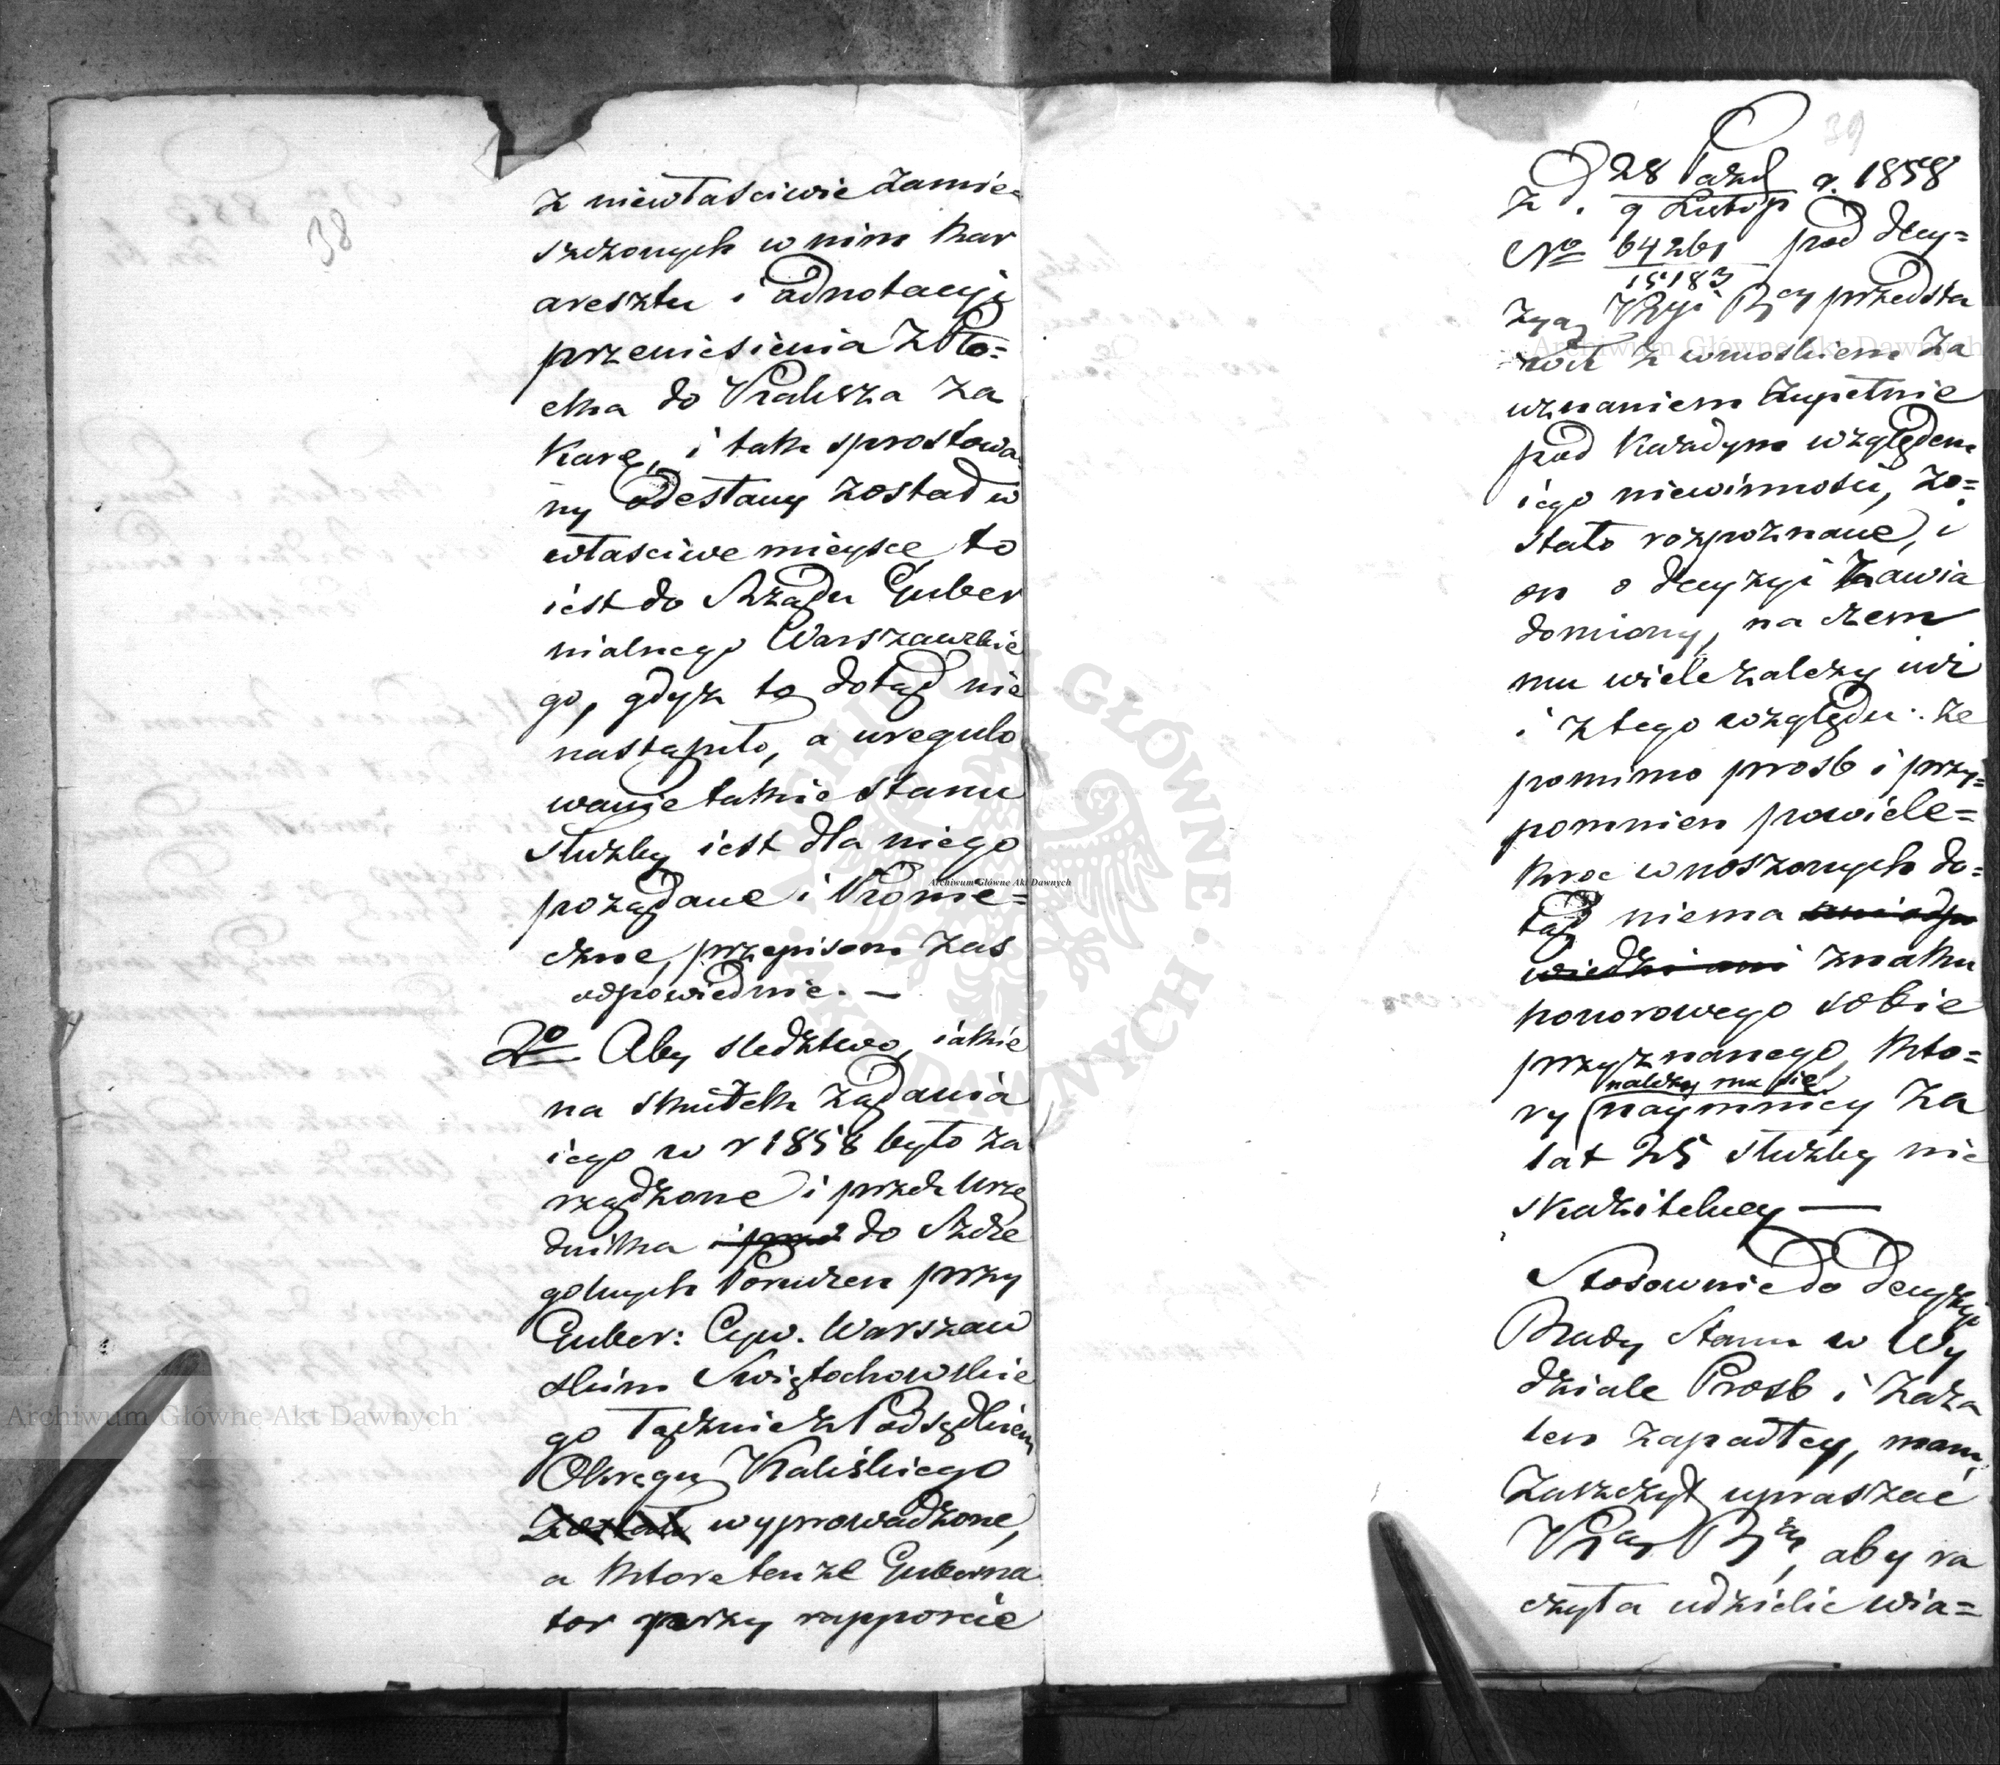 38
z niewłaściwie zamie=
szczonych w nim kar
aresztu i adnotacyi
przeniesienia z Pło=
cka do Kalisza za
karę, i tak sprostowa=
ny odesłany został w
właściwe mieysce, to
iest do Rządu Guber
nialnego Warszawskie
go, gdyż to dotąd nie
nastąpiło, a uregulo
wanie takie stanu
służby iest dla niego
pożądane i konie=
czne, przepisom zas
odpowiednie. —
2o Aby sledztwo, iakie
na skutek żądania
iego w r 1858 było za
rządzone i przez Urzę
dnika do Szcze
golnych Poruczen przy
Guber: Cyw. Warszaw
skim Swiętochowskie
go łącznie z Podsędkiem
Okręgu Kaliskiego
wyprowadzone,
a ktore tenze Guberna
tor przy rapporcie
39
z d. 28 Pazd / 9 Listop r. 1858
No 64261 / 15183 pod decy=
zyą przedsta
wił z wnioskiem za
uznaniem zupełnie
pod każdym względem
iego niewinności, zo=
stało rozpoznane, i
on o decyzyi zawia
domiony, na czem
mu wiele zależy iuż
i z tego względu: że
pomimo prosb i przy=
pomnien powiele=
kroc wnoszonych do=
tąd niema ani odpo
wiedzi ani znaku
honorowego sobie
przyznanego, kto=
należy mu się
ry naymnicy za
lat 25 służby nie
skazitelney —
Stosownie do decyzyi
Rady Stanu w Wy
dziale Prosb i Zaża
len zapadłey, mam
zaszczyt upraszać
aby ra
czyła udzielic wia=
Archiwum Główne Akt Dawnych
Archiwum Główne Akt Dawnych
Archiwum Główne Akt Dawnych
ARCHIWUM GŁÓWNE AKT DAWNYCH